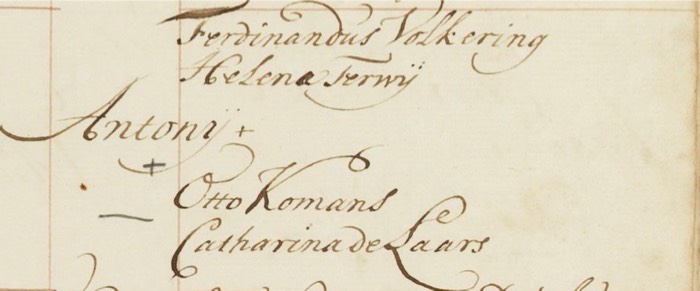 Ferdinandus Volkering
Helena Terwÿ
Antonÿ +
+
Otto Komans
Catharina de Laars